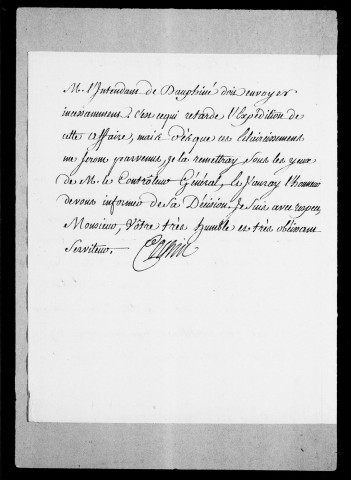 M. l'Intendant de Dauphiné doit envoyer
incessamment, c'est ce qui retarde l'Expédition de
cette affaire, mais dès que ces Eclaircissemens
me seront parvenus, je la remettray sous les yeux
de M. le Contrôleur Général, et j'auray l'honneur
de vous informer de sa Décision. Je suis avec respect,
Monsieur, Votre très humble et très obéissant
Serviteur.